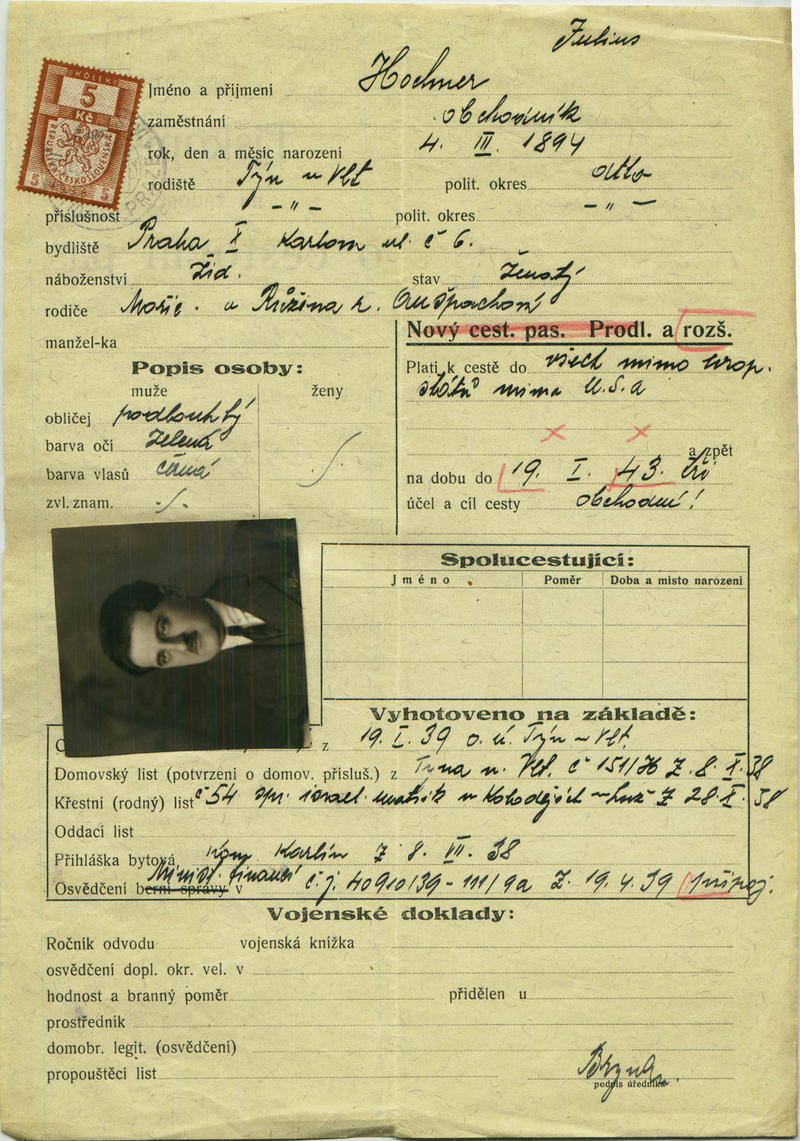 Julius
KOLEK
5
Kč
REPUBLIKY ČESKOSLOVENSKÉ
5 5
Jméno a příjmení Hochner
zaměstnání obchodník
rok, den a měsíc narození 4. III. 1894
rodiště Týn n Vlt polit. okres dtto
příslušnost – " – polit. okres – " –
bydliště Praha X Karlova ul. č 6.
náboženství žid. stav ženatý
rodiče Mořic a Růžena r.
manžel-ka
Nový cest. pas. Prodl. a rozš.
Platí k cestě do všech mimo evrop.
států mimo U.S.A
a zpět
na dobu do 19. I. 43. tří
účel a cíl cesty obchodní!
Popis osoby:
muže ženy
obličej podlouhlý
barva očí zelená
barva vlasů černá
zvl. znam. ·/.
Spolucestující:
Jméno Poměr Doba a misto narození
Vyhotoveno na základě:
z 19. I. 39 o. ú. Týn n Vlt.
Domovský list (potvrzení o domov. přísluš.) z Týna n. Vlt. č 151/ Z. 8. X. 38
Křestní (rodný) list č 54 spr. israel. matrik v Kolodějích n Luž Z 28. X. 38
Oddací list
Přihláška bytová Kom. Karlín Z 8. VII. 38
Minist. financí
Osvědčení berní správy v č. j. 40910/39-111/9a Z. 19. 4. 39
Vojenské doklady:
Ročník odvodu vojenská knížka
osvědčení dopl. okr. vel. v
hodnost a branný poměr přidělen u
prostředník
domobr. legit. (osvědčení)
propouštěcí list
podpis úředníka